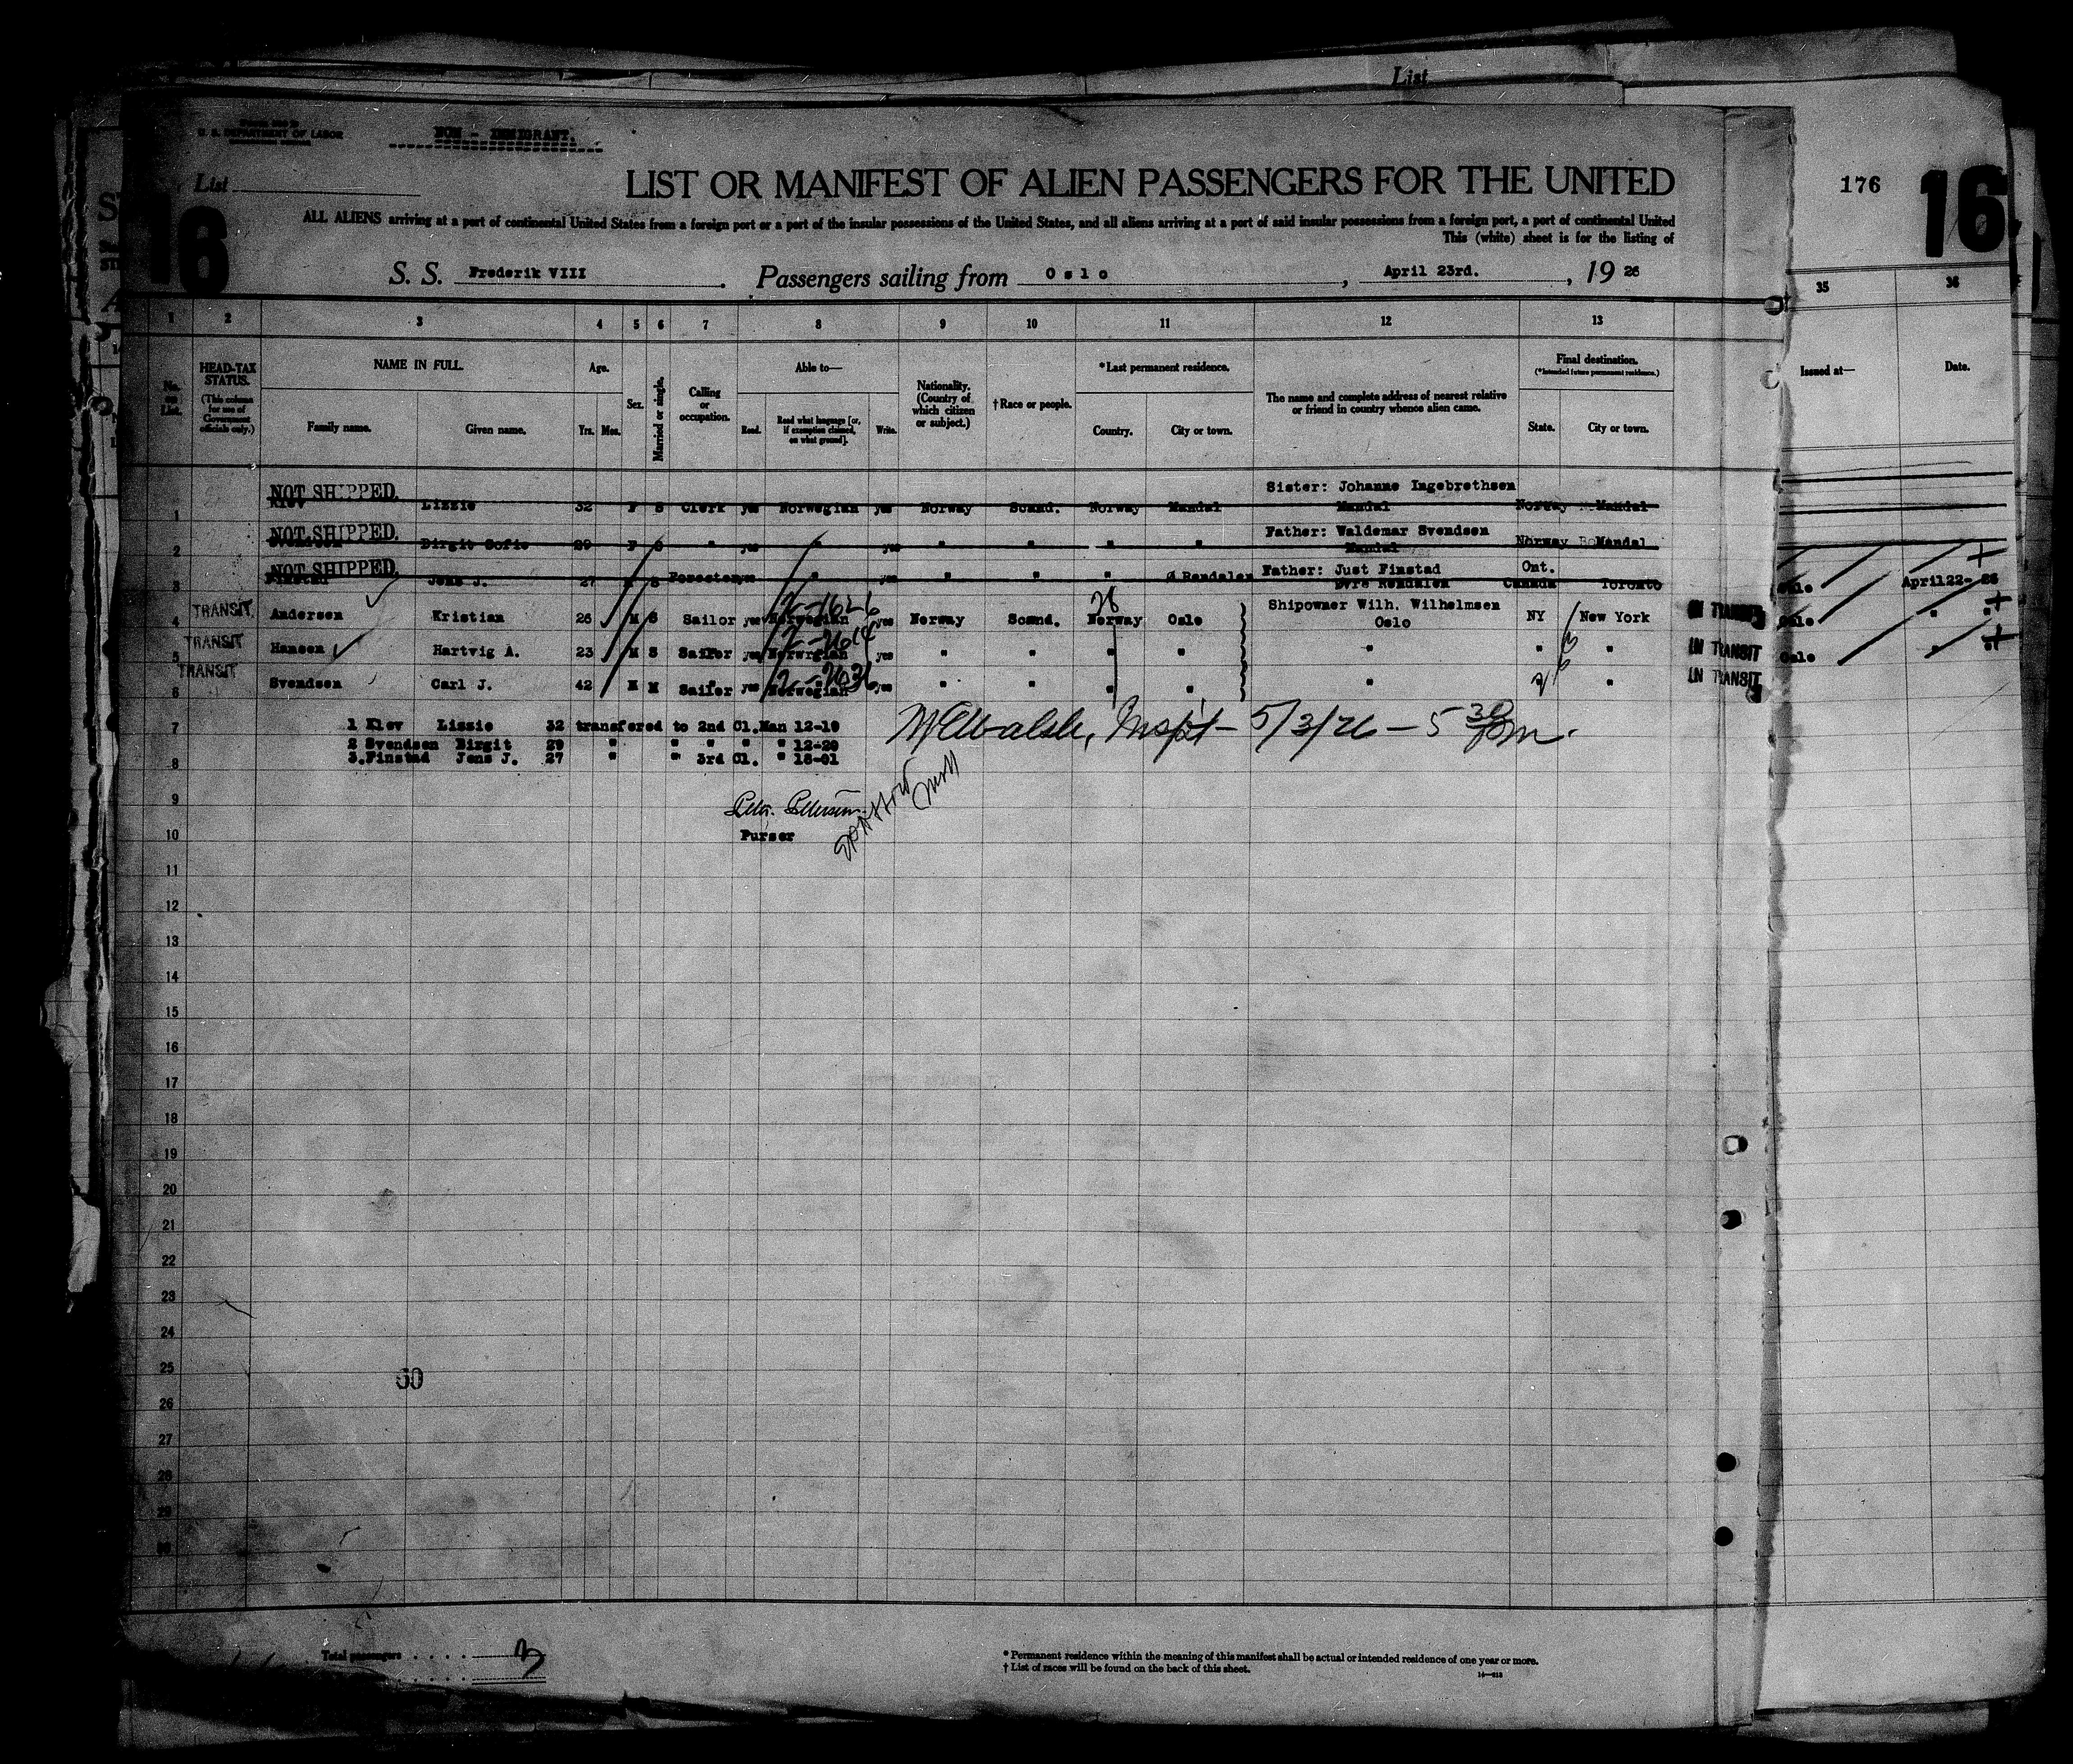 List
U. S. DEPARTMENT OF LABOR
NON - IMMIGRANT.
List
LIST OR MANIFEST OF ALIEN PASSENGERS FOR THE UNITED
176
16
16
ALL ALIENS arriving at a port of continental United States from a foreign port or a port of the insular possessions of the United States, and all aliens arriving at a port of said insular possessions from a foreign port, a port of continental United
This (white) sheet is for the listing of
S. S. Frederik VIII. Passengers sailing from Oslo, April 23rd., 19 26
1 2 3 4 5 6 7 8 9 10 11 12 13 35 36
No. on List.
HEAD-TAX STATUS.
(This column for use of Government officials only.)
NAME IN FULL.
Family name. Given name.
Age.
Yrs. Mos.
Sex.
Married or single.
Calling or occupation.
Able to—
Read. Read what language [or, if exemption claimed, on what ground]. Write.
Nationality. (Country of which citizen or subject.)
†Race or people.
*Last permanent residence.
Country. City or town.
The name and complete address of nearest relative or friend in country whence alien came.
Final destination.
(*Intended future permanent residence.)
State. City or town.
Issued at— Date.
NOT SHIPPED. Sister: Johanne Ingebrethsen
1 Klev Lizzie 32 F S Clerk yes Norwegian yes Norway Scand. Norway Mandal Mandal Norway Mandal
NOT SHIPPED. Father: Waldemar Svendsen
2 Svendsen Birgit Sofie 29 F S " yes " yes " " " " Mandal Norway Mandal
NOT SHIPPED. Father: Just Finstad Ont.
3 Finstad Jens J. 27 M S Forester yes " yes " " " Ø Rendalen Øvre Rendalen Canada Toronto
Oslo April 22- 26
TRANSIT. 2-1626 28 Shipowner Wilh. Wilhelmsen
4 Andersen Kristian 26 M S Sailor yes Norwegian yes Norway Scand. Norway Oslo Oslo NY New York IN TRANSIT
Oslo " "
TRANSIT
5 Hansen Hartvig A. 23 M S Sailor yes Norwegian yes " " " " " " " IN TRANSIT
Oslo " "
TRANSIT
6 Svendsen Carl J. 42 M M Sailor yes Norwegian yes " " " " " " IN TRANSIT
7 1 Klev Lizzie 32 transfered to 2nd Cl.Man 12-19
Walsh, Insp't - 5/3/26 - 5 30 pm.
2 Svendsen Birgit 29 " " " " " 12-20
8 3.Finstad Jens J. 27 " " 3rd Cl. " 18-01
9
10 Purser
11
12
13
14
15
16
17
18
19
20
21
22
23
24
25 60
26
27
28
29
30
Total passengers . . . . 3
* Permanent residence within the meaning of this manifest shall be actual or intended residence of one year or more.
† List of races will be found on the back of this sheet.